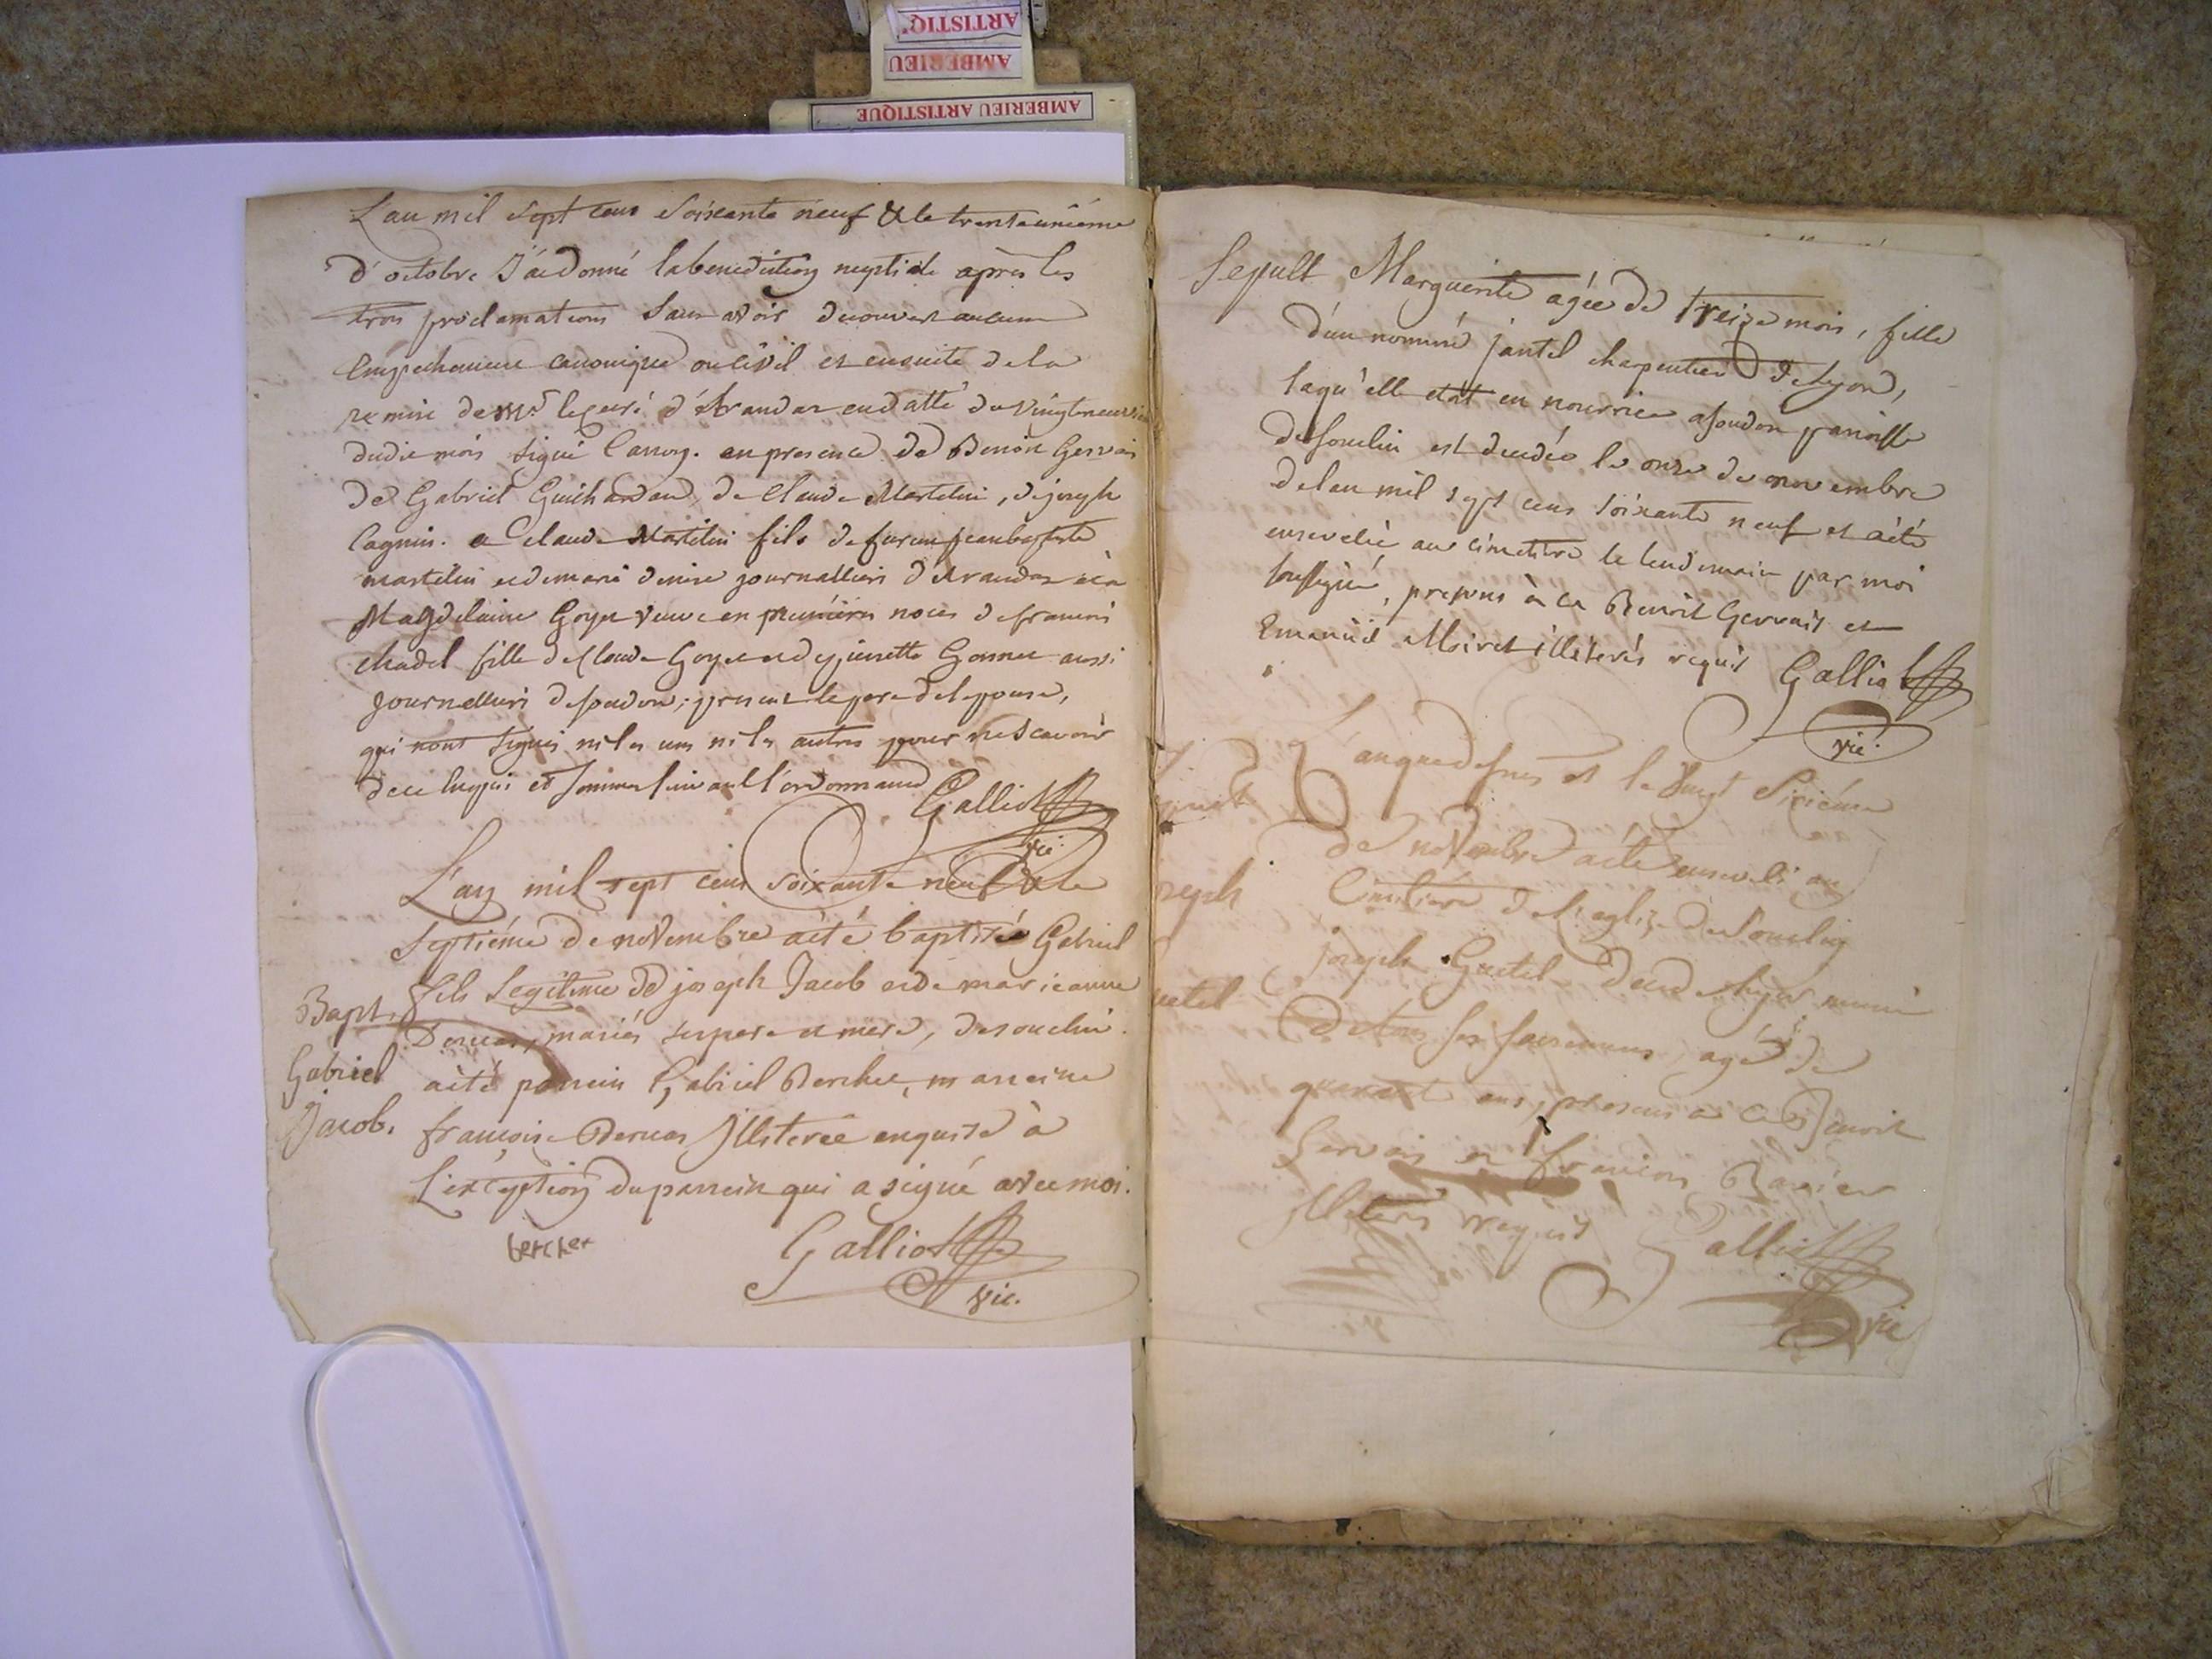 ARTISTIQ'
AMBERIEU
AMBERIEU ARTISTIQUE
L'an mil sept cens soixante neuf & le trenteunième
d'octobre J'ai donné la benediction nuptiale après les
trois proclamations sans avoir decouvert aucun
empechement canonique ou civil et ensuite de la
remise de Mr. le curé d'Arandas en datte du vingtneuvie
dudit mois signé en presence de Benoit Gervais
de Gabriel Guichardan, de Claude Martelin, de joseph
Cagnin. a Claude Martelin fils de jean baptiste
martelin et de marie denise journalliers d'Arandas et à
Magdelaine Goyet veuve en premieres noces de francois
chadel fille de Claude Goyet et de pierrette aussi
journalliers de soudon; present le pere de lepouse,
qui nont signés ni les uns ni les autres pour ne scavoir
de ce enquis et sommes suivant l'ordonnance Galliot
vic.
L'an mil sept cens soixante neuf & le
septième de novembre a été baptisé Gabriel
fils legitime de joseph Jacob et de marieanne
mariés ses pere et mere, de souclin.
a été parrein Gabriel Bercher, marreine
francoise illiterée enquise à
L'exception du parrein qui a signé avec moi.
Bapt.
Gabriel
Jacob.
bercher Galliot
vic.
Sepult Marguerite agée de treize mois, fille
d'un nommé jantel charpentier de Lyon,
laqu'elle etoit en nourrice a soudon paroisse
de souclin est decedée le onze de novembre
de lan mil sept cens soixante neuf et a été
ensevelie au cimetiere le lendemain par moi
soussigné, presens à ce Benoit Gervais et
Emanüel Moiret illiterés requis Galliot
vic.
L'an que dessus et le vingt sixiéme
de novembre a été enseveli au
Cimetiere de l'eglize de Souclin
joseph Guetel muni
de tous ses sacremens, agé de
quarante ans, presens à ce Benoit
Gervais et francois
illiterés requis Galliot
vic